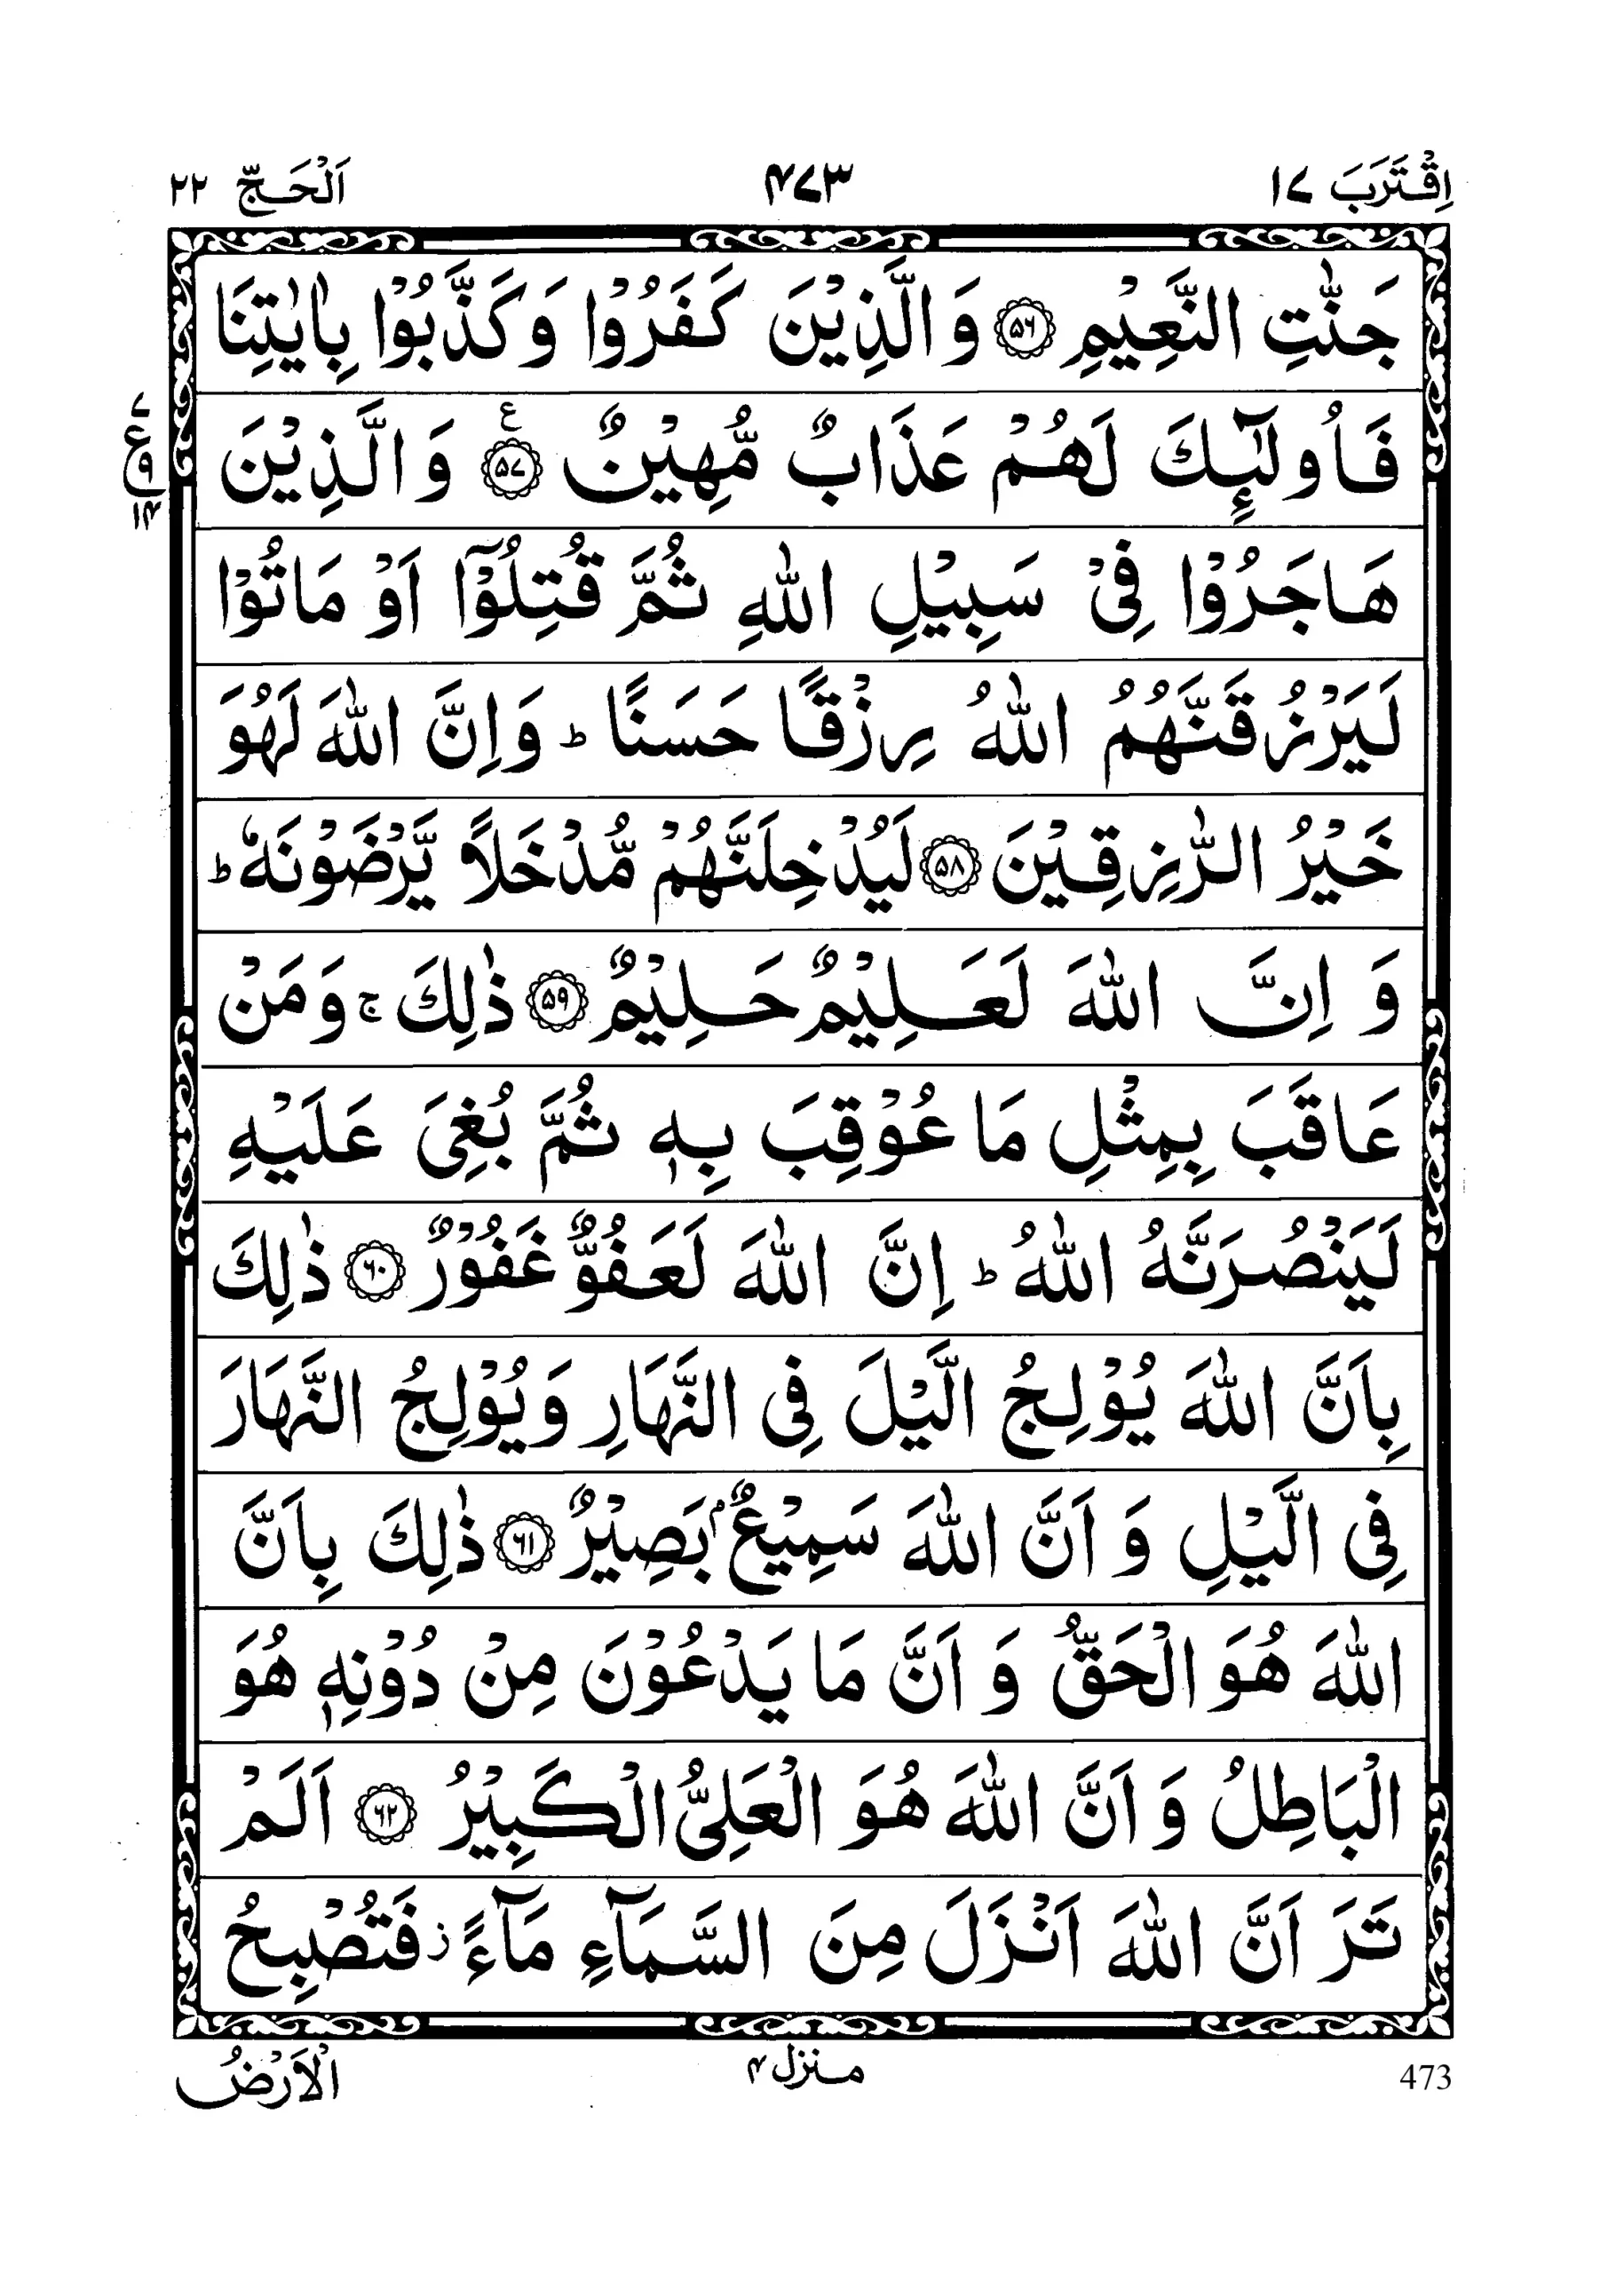 اِقْتَرَبَ ١٧ ۴۷۳ اَلْحَجّ ٢٢
جَنّٰتِ النَّعِيْمِ ﴿۵۶﴾ وَالَّذِيْنَ كَفَرُوْا وَكَذَّبُوْا بِاٰيٰتِنَا
فَاُولٰٓئِكَ لَهُمْ عَذَابٌ مُّهِيْنٌ ﴿۵۷﴾ ع وَالَّذِيْنَ
٧ ع ٩ ١۴
هَاجَرُوْا فِيْ سَبِيْلِ اللّٰهِ ثُمَّ قُتِلُوْٓا اَوْ مَاتُوْا
لَيَرْزُقَنَّهُمُ اللّٰهُ رِزْقًا حَسَنًا ؕ وَاِنَّ اللّٰهَ لَهُوَ
خَيْرُ الرّٰزِقِيْنَ ﴿۵۸﴾ لَيُدْخِلَنَّهُمْ مُّدْخَلًا يَّرْضَوْنَهٗ ؕ
وَ اِنَّ اللّٰهَ لَعَلِيْمٌ حَلِيْمٌ ﴿۵۹﴾ ذٰلِكَ ۚ وَمَنْ
عَاقَبَ بِمِثْلِ مَا عُوْقِبَ بِهٖ ثُمَّ بُغِيَ عَلَيْهِ
لَيَنْصُرَنَّهُ اللّٰهُ ؕ اِنَّ اللّٰهَ لَعَفُوٌّ غَفُوْرٌ ﴿۶۰﴾ ذٰلِكَ
بِاَنَّ اللّٰهَ يُوْلِجُ الَّيْلَ فِي النَّهَارِ وَيُوْلِجُ النَّهَارَ
فِي الَّيْلِ وَ اَنَّ اللّٰهَ سَمِيْعٌۢ بَصِيْرٌ ﴿۶۱﴾ ذٰلِكَ بِاَنَّ
اللّٰهَ هُوَ الْحَقُّ وَ اَنَّ مَا يَدْعُوْنَ مِنْ دُوْنِهٖ هُوَ
الْبَاطِلُ وَ اَنَّ اللّٰهَ هُوَ الْعَلِيُّ الْكَبِيْرُ ﴿۶۲﴾ اَلَمْ
تَرَ اَنَّ اللّٰهَ اَنْزَلَ مِنَ السَّمَآءِ مَآءً ز فَتُصْبِحُ
473 منزل ۴ الْاَرْضُ